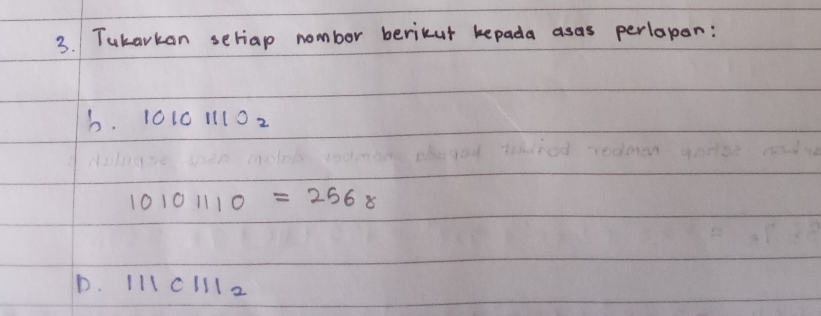 3. Tukarkan setiap nombor berikut kepada asas perlapan:
b. 10101110₂
10101110 = 256₈
D. 1110111₂